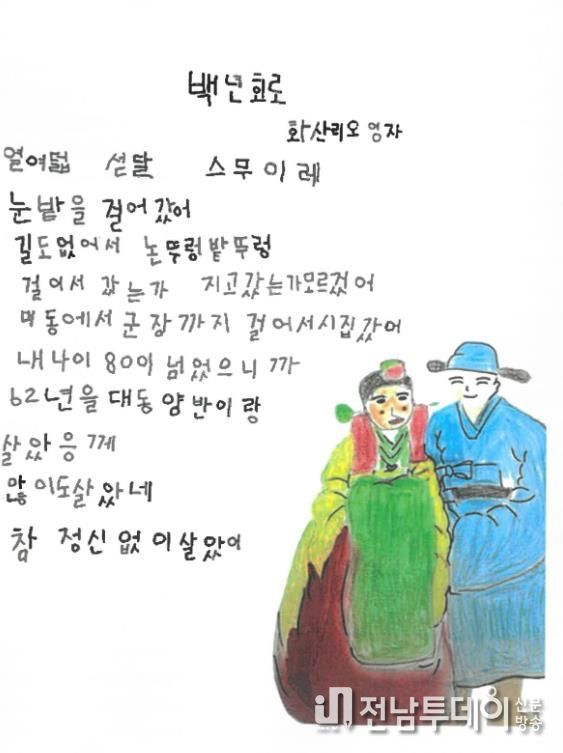 백년효로
화산리오 영자
열여덟 섣달 스무이레
눈밭을 걸어갔어
길도없어서 논뚜렁밭뚜렁
걸어서 갔는가 지고갔는가모르겄어
대동에서 군장까지 걸어서시집갔어
내나이 80이 넘었으니까
62년을 대동양반이랑
살았응께
많이도살았네
참 정신없이살았어
전남투데이 신문방송